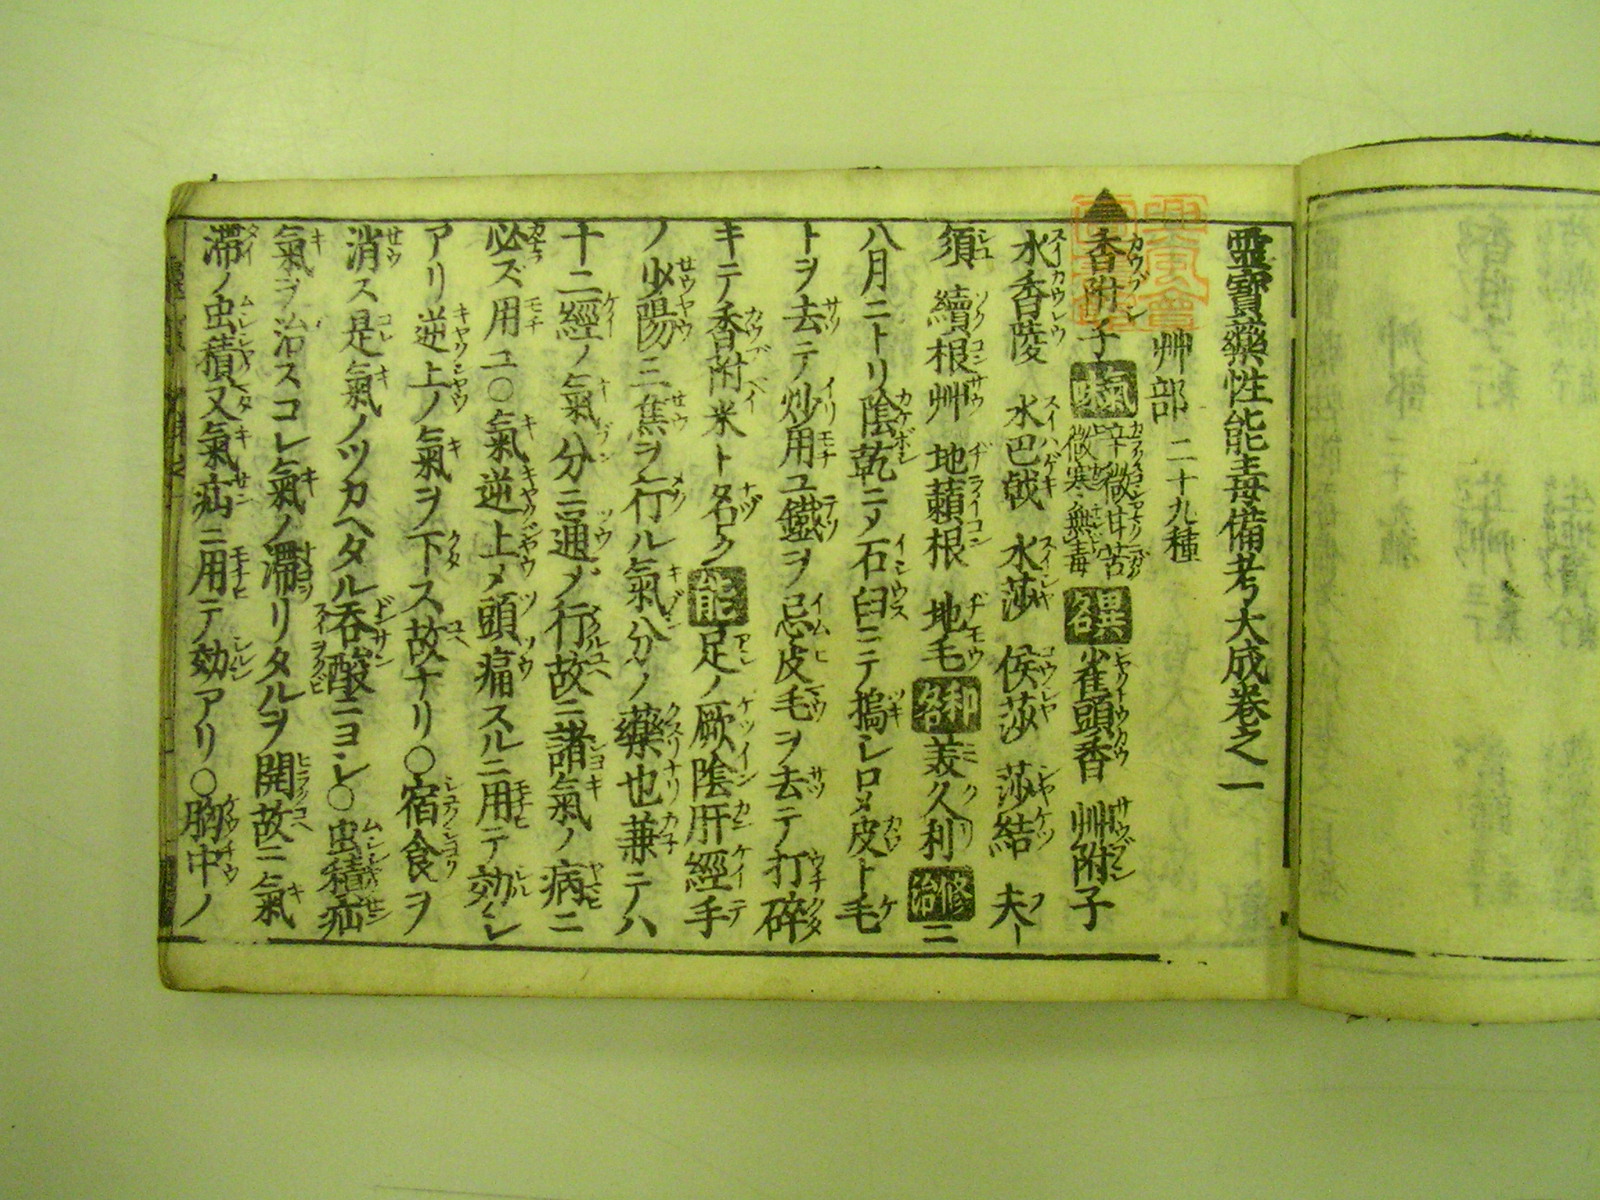 靈寶藥性能毒備考大成卷之一
艸部 二十九種
香附子 氣味 辛微甘苦微寒無毒 異名 雀頭香 艸附子
水香陵 水巴戟 水莎 侯莎 莎結 夫ー
須 續根艸 地藾根 地毛 和名 美久利 修治 二
八月ニトリ陰乾ニメ石臼ニテ搗シロメ皮ト毛
トヲ去テ炒用ユ鐵ヲ忌皮毛ヲ去テ打碎
キテ香附米ト名ク 能 足ノ厥陰肝經手
ノ少陽三焦ヲ行ル氣分ノ藥也兼テハ
十二經ノ氣分ニ通メ行故ニ諸氣ノ病ニ
必ズ用ユ○氣逆上メ頭痛スルニ用テ効シ
アリ逆上ノ氣ヲ下ス故ナリ○宿食ヲ
消ス是氣ノツカヘタル呑酸ニヨシ○虫積疝
氣ヲ治スコレ氣ノ滞リタルヲ開故ニ氣
滞ノ虫積又氣疝ニ用テ効アリ○胸中ノ